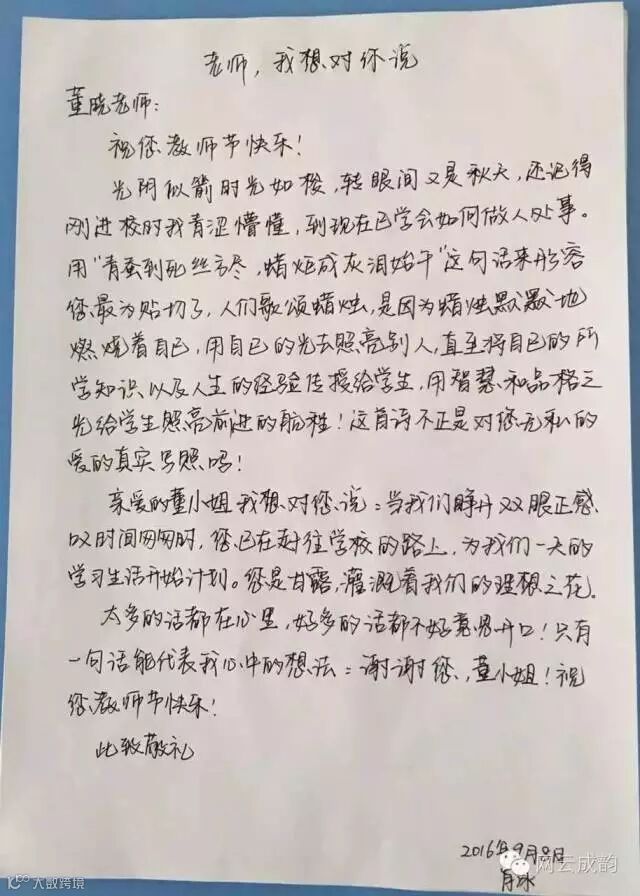 老师，我想对你说
董晓老师：
祝您教师节快乐！
光阴似箭时光如梭，转眼间又是秋天，还记得
刚进校时我青涩懵懂，到现在已学会如何做人处事。
用“青蚕到死丝方尽，蜡炬成灰泪始干”这句话来形容
您最为贴切了，人们歌颂蜡烛，是因为蜡烛默默地
燃烧着自己，用自己的光去照亮别人，直至将自己的所
学知识以及人生的经验传授给学生，用智慧和品格之
光给学生照亮前进的航程！这首诗不正是对您无私的
爱的真实写照吗！
亲爱的董小姐我想对您说：当我们睁开双眼正感
叹时间匆匆时，您已在赶往学校的路上，为我们一天的
学习生活开始计划。您是甘露，灌溉着我们的理想之花。
太多的话都在心里，好多的话都不好意思开口！只有
一句话能代表我心中的想法：谢谢您，董小姐！祝
您教师节快乐！
此致敬礼
2016年9月8日
肖冰
网云成韵
大数跨境